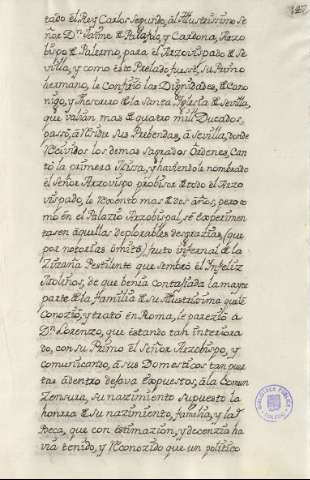 tado el Rey Carlos Segundo, al Illustrissimo Se
ñor Dn. Jaime de Palafox, y Cardona, Arzo
bispo de Palermo, para el Arzovispado de Se
villa, y como este Prelado fuesse su Primo
hermano, le confirió las Dignidades, de Cano
nigo, y Thesorero de la Santa Iglesia de Sevilla,
que valian mas de quatro mil Ducados,
passó, à residir sus Prebendas, à Sevilla, donde
recividos los demas sagrados Ordenes, Can
tò la primera Missa, y haviendole nombrado
el Señor Arzovispo probisor de todo el Arzo
vispado, le
mo en el Palazio Arzobispal, se experimen
tasen aquellas deplorables desgrazias, (que
por notorias omito,) fruto infernal de la
Zizaña Pestilente que sembró el Infeliz
Molinos, de que venia contaxiada la mayor
parte de la familia de su Illustrissima que le
Conozió, y trató en Roma, le parezió a
Dn. Lorenzo, que estando tan interiora
do, con su Primo el Señor Arzobispo, y
comunicando, à sus Domesticos tan puer
tas adentro dejava expuestos, à la Comun
Zensura, su nazimiento supuesto la
honrra de su nazimiento, familia, y la
Beca, que con estimazion, y dezenzia ha
via tenido, y reconozido que un politico